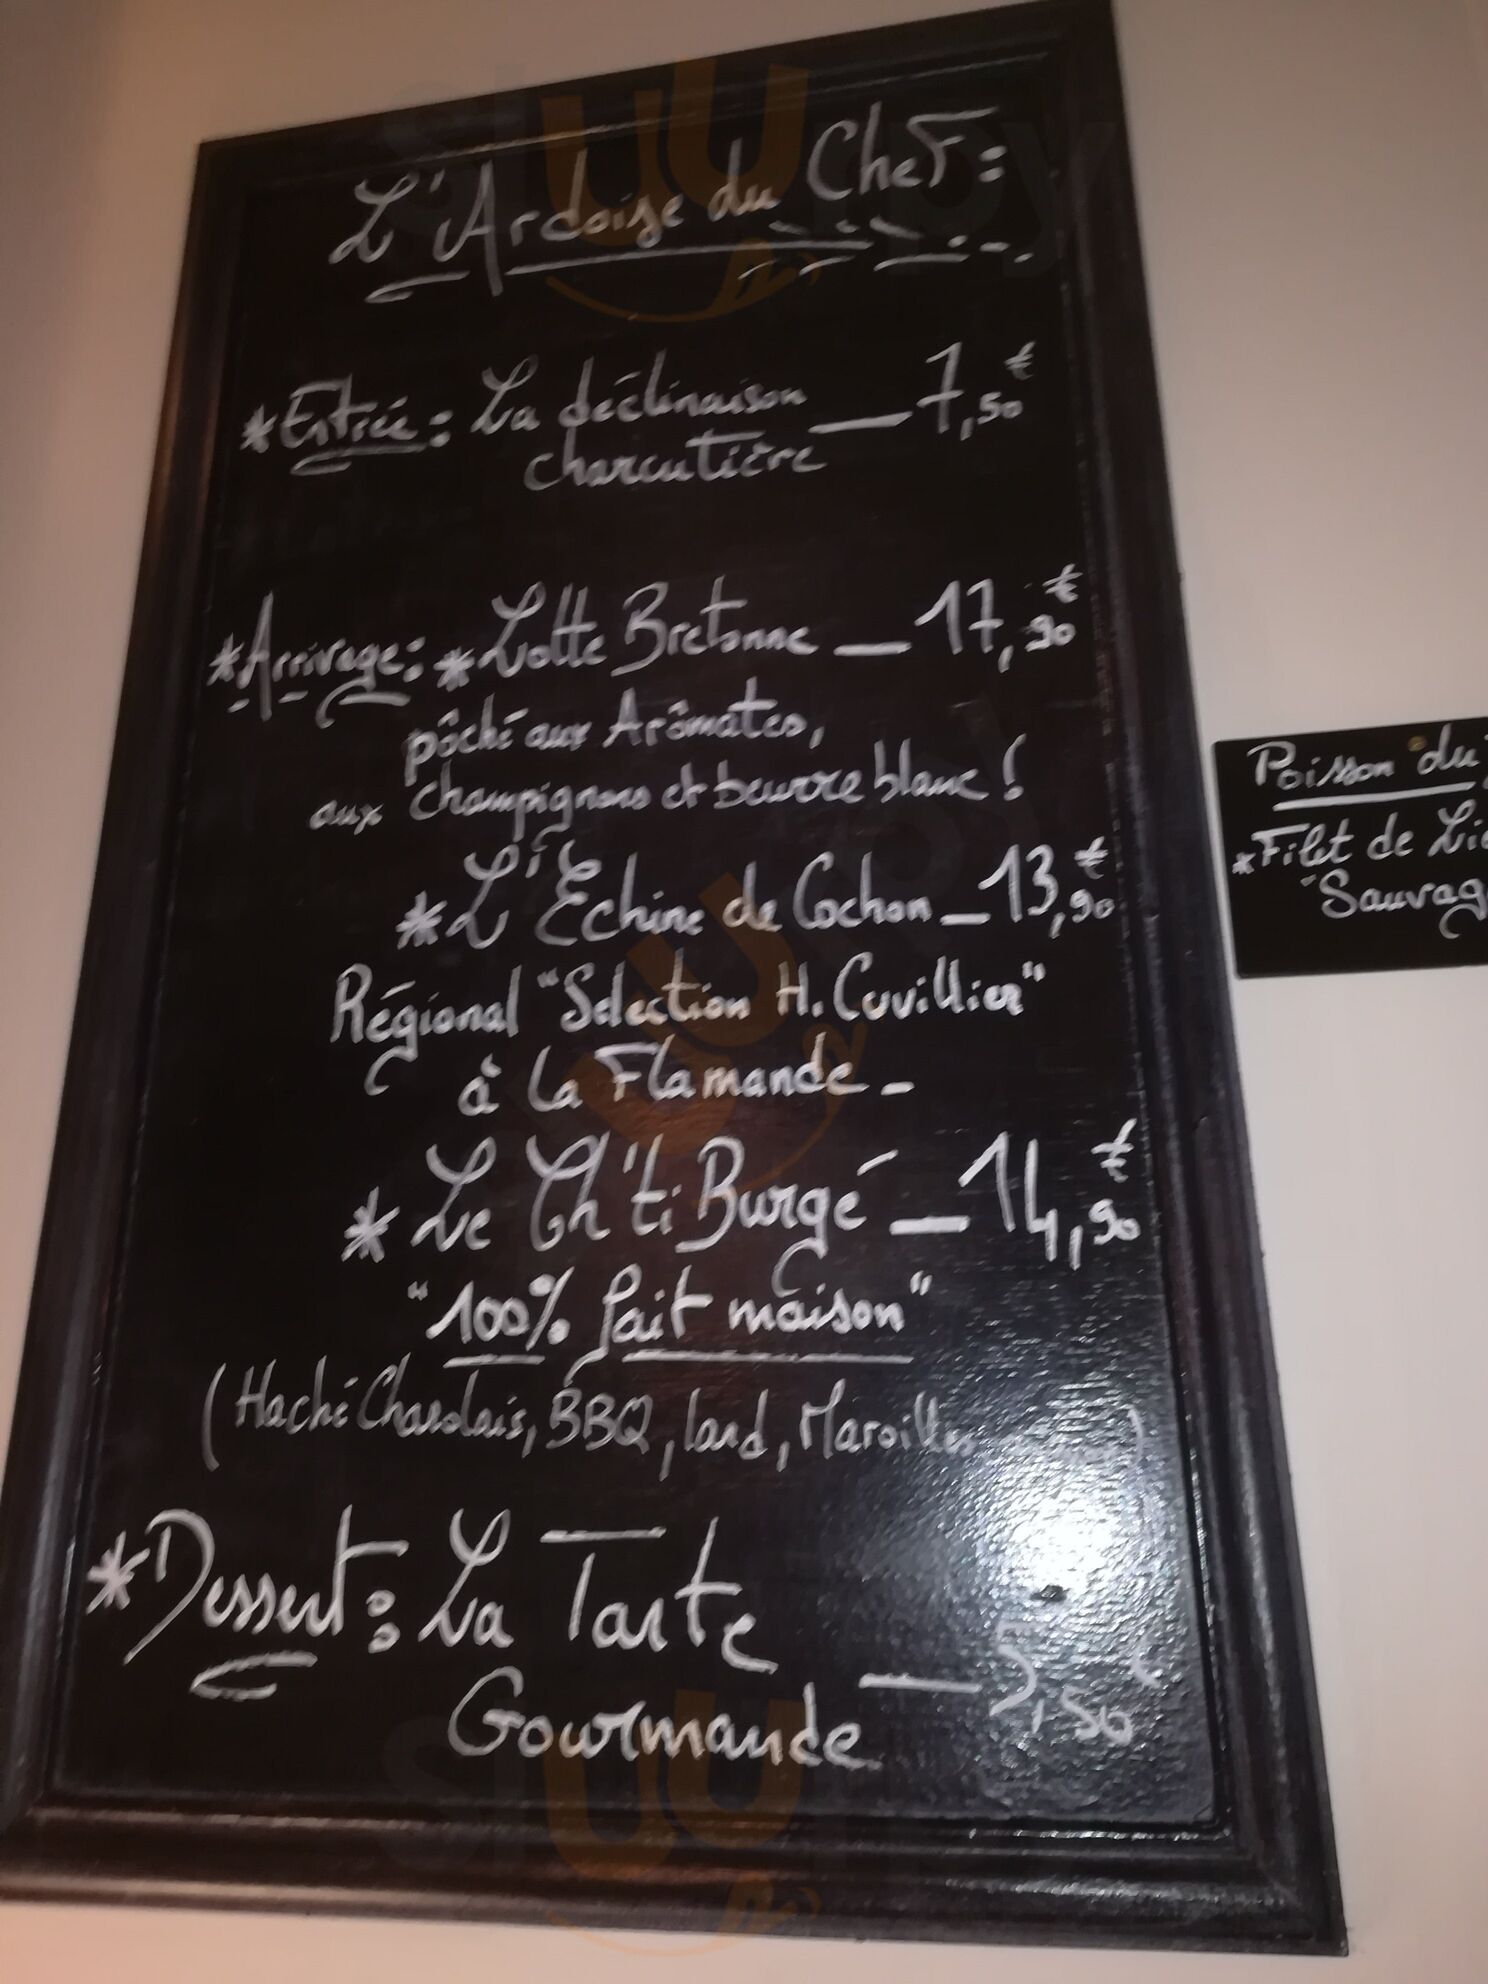 L'Ardoise du Chef :
*Entrée : La déclinaison — 7,50€
charcutière
*Arrivage : *Lotte Bretonne — 17,90€
pôché aux Arômates,
aux champignons et beurre blanc !
*L'Échine de Cochon — 13,90€
Régional "Selection H. Cuvillier"
à la Flamande -
* Le Ch'ti Burgé — 14,90€
"100% fait maison"
(Haché Charolais, BBQ, lard, Maroilles )
*Dessert : La Tarte
Gourmande — 5,50€
Poisson du
*Filet de
Sauvag
sluurpy
sluurpy
sluurpy